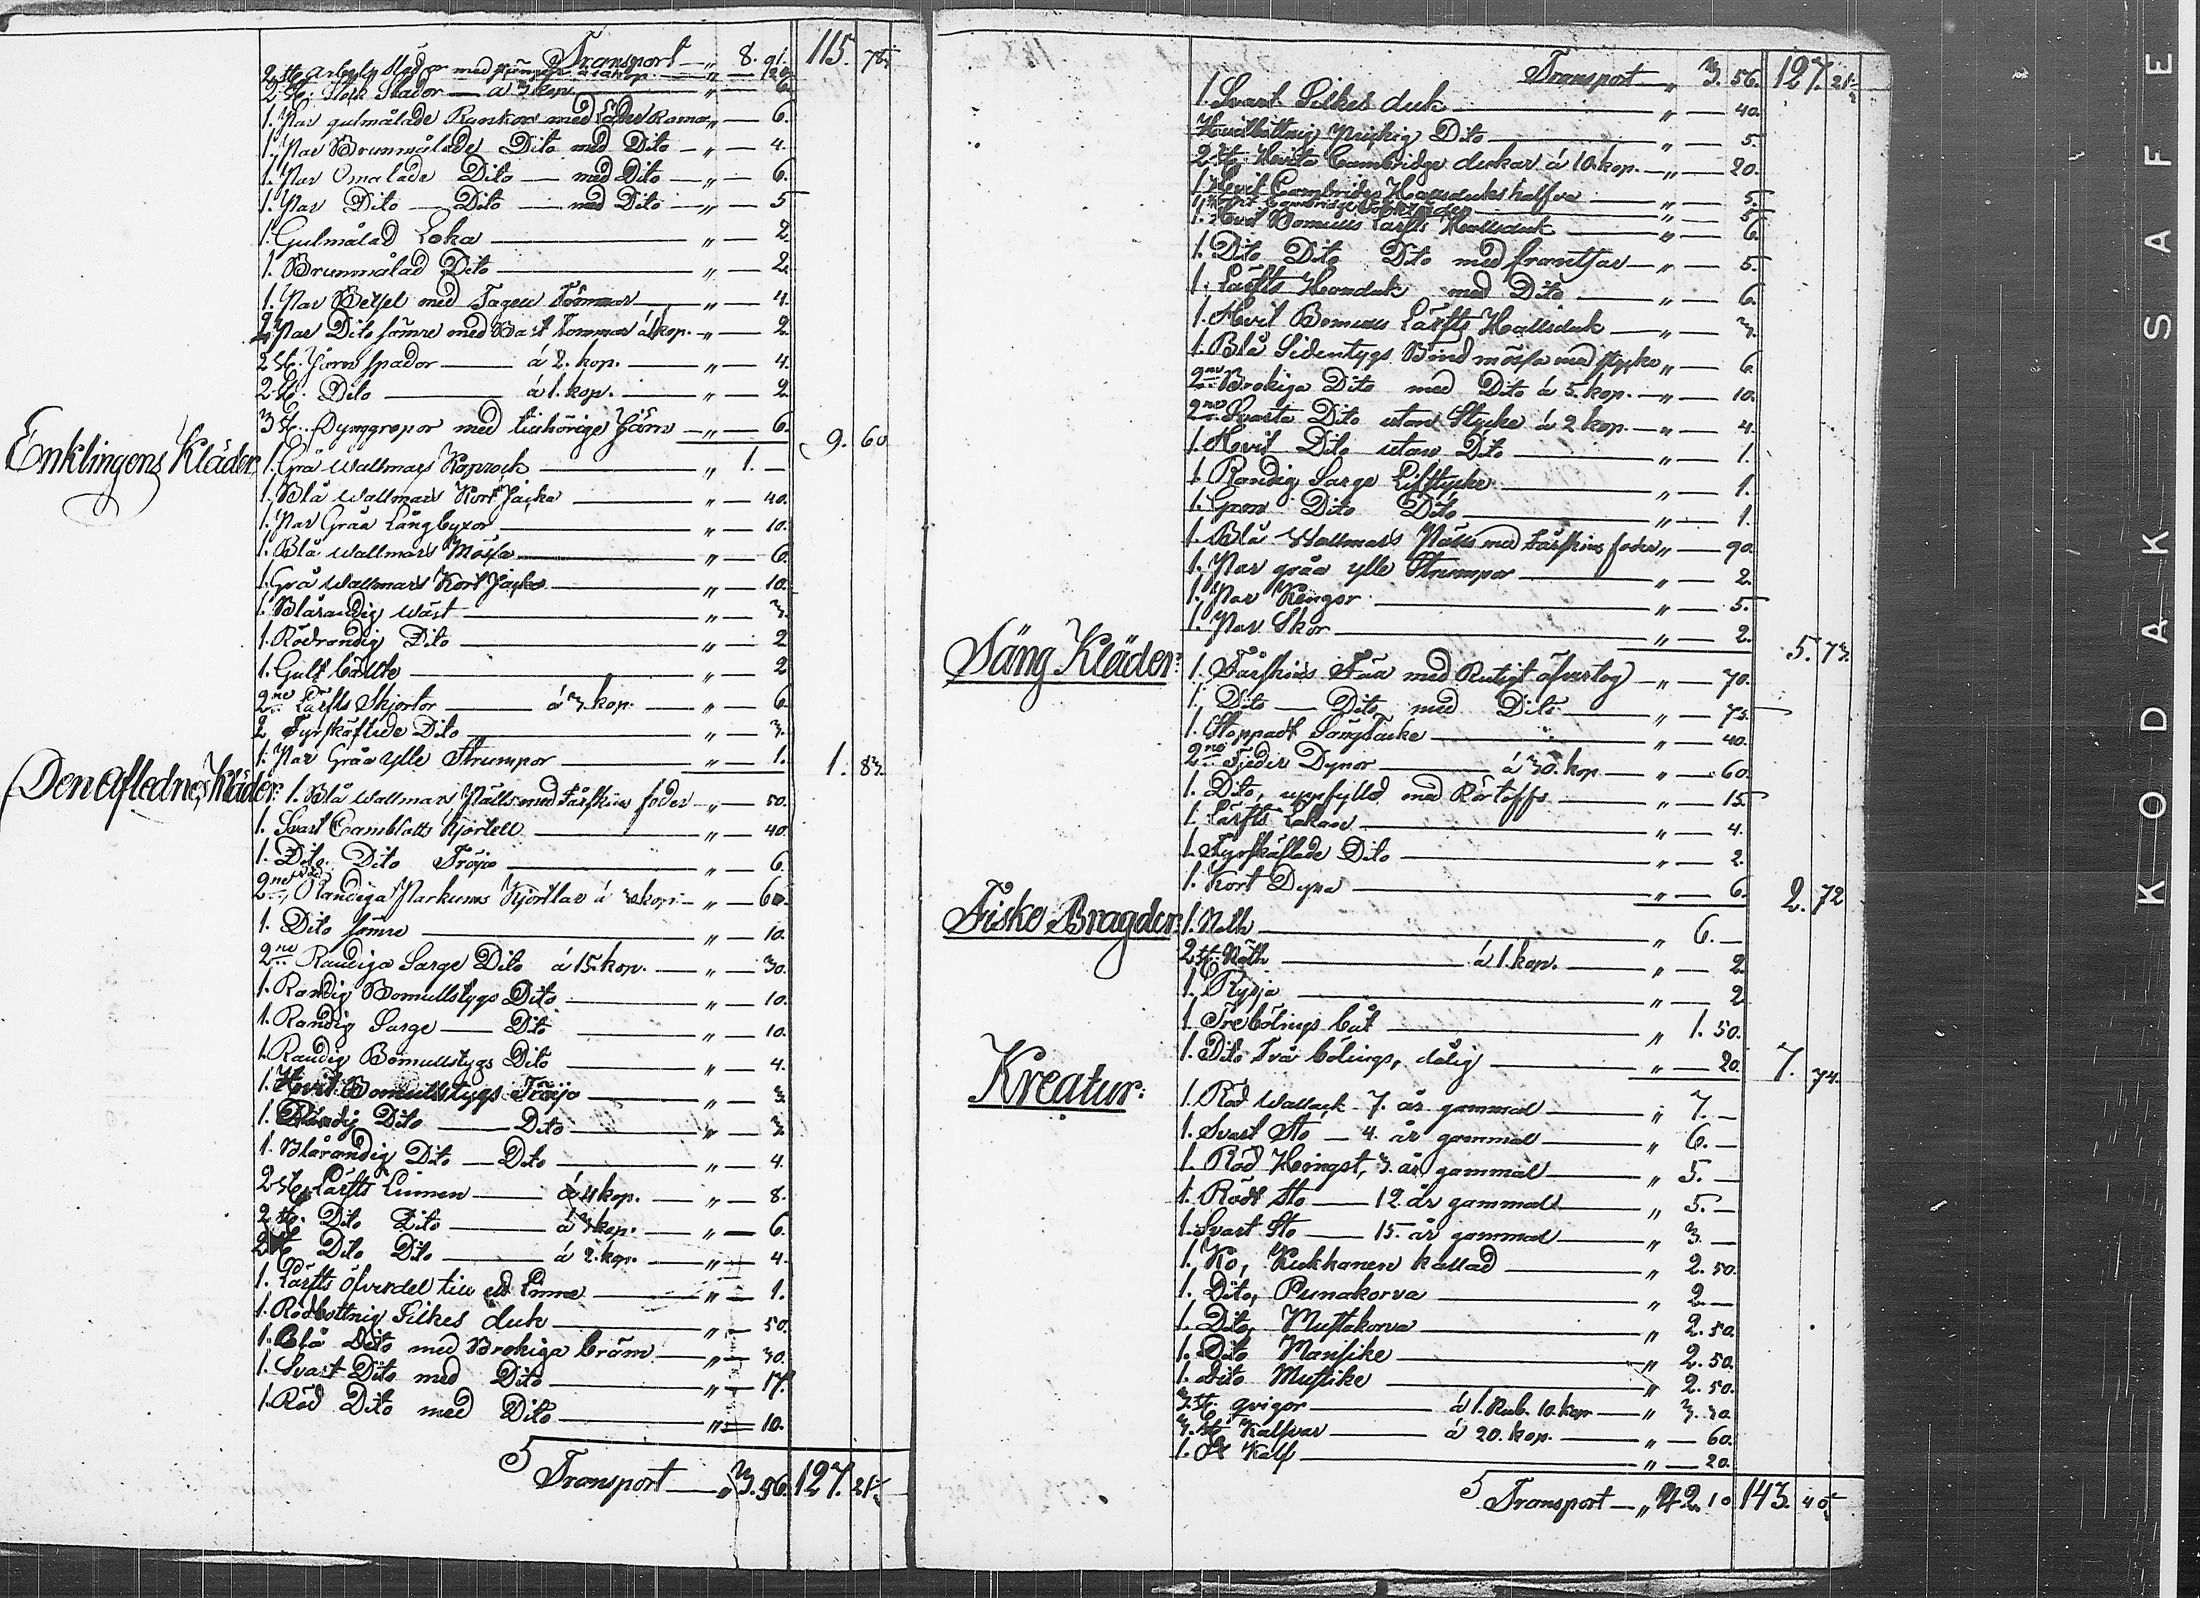 Transport — „ 8. 91. 115. 78
2 st. Arbets slädor med
2 st. Stock Slädor — á 3 kop. — „ — 6.
1. Par gulmålade Rankor med Läder — „ — 6.
1. Par Brunmålade Dito med Dito — „ — 4.
1. Par Omalade Dito — med Dito — „ — 6.
1. Par Dito — Dito — med Dito — „ — 5
1. Gulmålad Loka — „ — 2.
1. Brunmålad Dito — „ — 2.
1. Par Betsel med Tagel Tömmar — „ — 4.
2. Par Dito sämre med Bast Tömmar á 1 kop. — „ — 2.
2 st. Järn spador — á 2. kop. — „ — 4.
2 st. Dito — á 1. kop. — „ — 2.
3 st. Dynggrepor med tillhörige Järn — „ — 6. 9. 60.
Enklingens Kläder:
1. Grå Wallmars Kaprock — „ 1. —
1. Blå Wallmars Kort Jacka — „ — 40.
1. Par Gråa Långbyxor — „ — 10.
1. Blå Wallmars Mössa — „ — 6.
1. Grå Wallmars Kort Jacka — „ — 10.
1. Blårandig Wäst — „ — 3.
1. Rödrandig Dito — „ — 2
1. Gult bällte — „ — 2
2ne Lärfts Skjortor — á 3 kop. — „ — 6.
2 Fyrskäftade Dito — „ — 3.
1. Par Gråa ylle Strumpor — „ — 1. 1. 83.
Den Aflednes Kläder:
1. Blå Wallmars Pälls med Fårskins foder — „ — 50.
1. Svart Camblatts Kjortell — „ — 40.
1. Dito Dito Tröja — „ — 6.
2ne Randiga Parkums Kjortlar á 30 kop. — „ — 60.
1. Dito sämre — „ — 10.
2ne Randiga Sarge Dito á 15. kop. — „ — 30.
1. Randig Bomullstygs Dito — „ — 10.
1. Randig Sarge — Dito — „ — 10.
1. Randig Bomullstygs Dito — „ — 4.
1. Hvit Bomullstygs Tröja — „ — 3.
1. Randig Dito — Dito — „ — 3.
1. Blårandig Dito — Dito — „ — 4.
2 st. Lärfts Linnen — á 4 kop. — „ — 8.
2 st. Dito Dito — á 3 kop. — „ — 6.
2 st. Dito Dito — á 2. kop. — „ — 4.
1. Lärfts öfverdel till ett Linne — „ — 1.
1. Rödbottnig Silkes duk — „ — 50.
1. Blå Dito med Brokiga bräm — „ — 30.
1. Svart Dito med Dito — „ — 17.
1. Röd Dito med Dito — „ — 10.
Transport — „ 3. 56. 127. 21
Transport — „ 3. 56. 127. 21
1. Svart Silkes duk — „ — 40.
Hvitbottnig Dito — „ — 5.
2 st. Hvita Cambridge dukar á 10. kop. — „ — 20.
1. Hvit Cambridge Hallsduks halfva — „ — 5.
1. Hvit Cambridge — „ — 5
1. Hvit Bomulls Lärfts Hallsduk — „ — 6.
1. Dito Dito Dito med frantsar — „ — 5.
1. Lärfts Handuk med Dito — „ — 6.
1. Hvit Bomulls Lärfts Hallsduk — „ — 3.
1. Blå Sidentygs Bindmössa med stycke — „ — 6
2ne Brokiga Dito med Dito á 5. kop. — „ — 10.
2ne Svarta Dito utan Stycke á 2 kop. — „ — 4.
1. Hvit Dito utan Dito — „ — 1.
1. Randig Sarge Lifstycke — „ — 1.
1. Grön Dito Dito — „ — 1.
1. Blå Wallmars Pälls med Fårskins foder „ — 90.
1. Par gråa ylle Strumpor — „ — 2.
1. Par Kengor — „ — 5.
1. Par Skor — „ — 2. 5. 73.
Säng Kläder:
1. Fårskins Fäll med Rutigt öfvertog — „ — 70.
1. Dito — Dito med Dito — „ — 75.
1. Stoppadt Sängtäcke — „ — 40.
2ne Fjeder Dynor — á 30. kop — „ — 60.
1. Dito, uppfylld med Rörtoffs — „ — 15
1. Lärfts Lakan — „ — 4.
1. Fyrskäftade Dito — „ — 2.
1. Kort Dyna — „ — 6. 2. 72
Fiske Bragder:
1. Noth — „ 6. —
2 st. Näth — á 1. kop. — „ — 2.
1. Rysja — „ — 2
1. Trebölings båt — „ 1. 50.
1. Dito Två bölings, dålig — „ — 20. 7. 74.
Kreatur:
1. Röd Wallack 7. år gammal — „ 7. —
1. Svart Sto — 4. år gammal — „ 6. —
1. Röd Hingst, 3. år gammal — „ 5. —
1. Rödt Sto — 12. år gammal — „ 5. —
1. Svart Sto — 15. år gammal — „ 3. —
1. Ko, Kukkanen kallad — „ 2. 50.
1. Dito, Punakorva — „ 2. —
1. Dito, Mustakorva — „ 2. 50.
1. Dito Mansike — „ 2. 50.
1. Dito Mustike — „ 2. 50.
3 st. qvigor — á 1. Rub. 10. kop — „ 3. 30.
3. st. Kalfvar — á 20. kop. — „ — 60.
1. Ox Kalf — „ — 20.
Transport — „ 42. 10 143. 40
KODAK SAFE